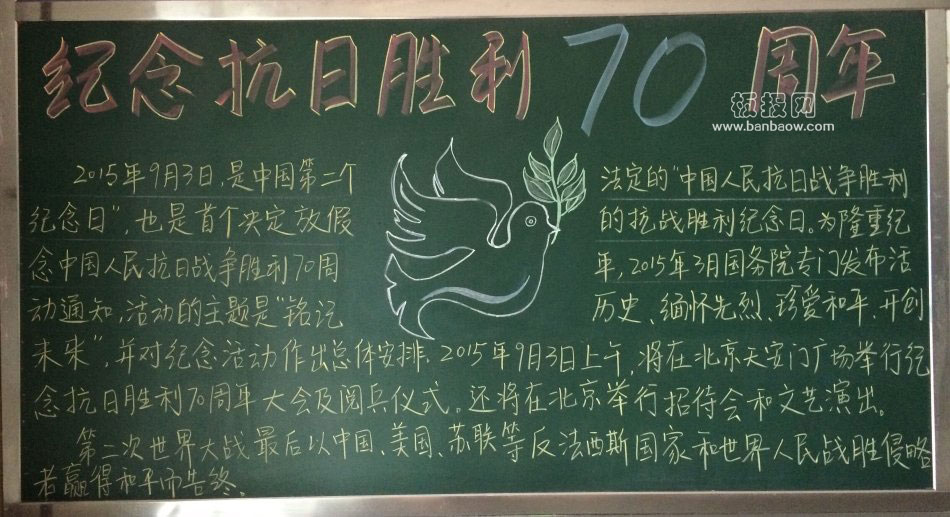 纪念抗日胜利70周年
板报网
www.banbaow.com
2015年9月3日,是中国第二个法定的"中国人民抗日战争胜利
纪念日",也是首个决定放假的抗战胜利纪念日。为隆重纪
念中国人民抗日战争胜利70周年,2015年3月国务院专门发布活
动通知,活动的主题是"铭记历史、缅怀先烈、珍爱和平、开创
未来",并对纪念活动作出总体安排.2015年9月3日上午,将在北京天安门广场举行纪
念抗日胜利70周年大会及阅兵仪式。还将在北京举行招待会和文艺演出。
第二次世界大战最后以中国、美国、苏联等反法西斯国家和世界人民战胜侵略
者赢得和平而告终。